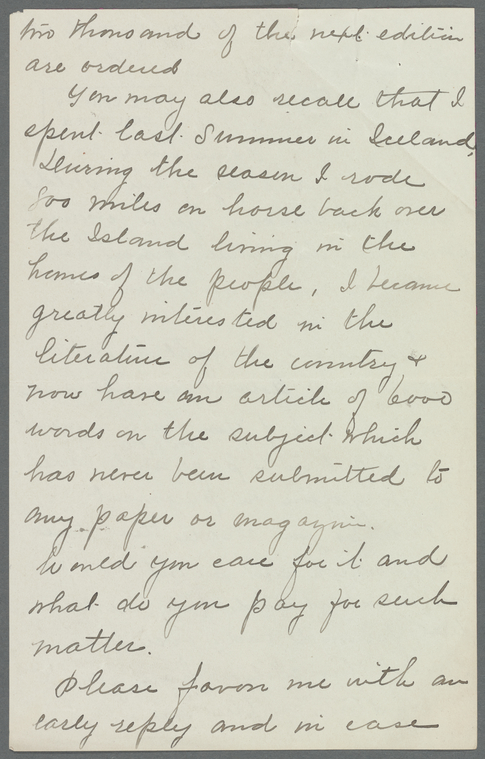 two thousand of the next edition
are ordered
You may also recall that I
spent last Summer in Iceland,
During the season I rode
800 miles on horse back over
the Island living in the
homes of the people, I became
greatly interested in the
literature of the country &
now have an article of 6000
words on the subject which
has never been submitted to
any paper or magazine.
Would you care for it and
what do you pay for such
matter.
Please favor me with an
early reply and in case